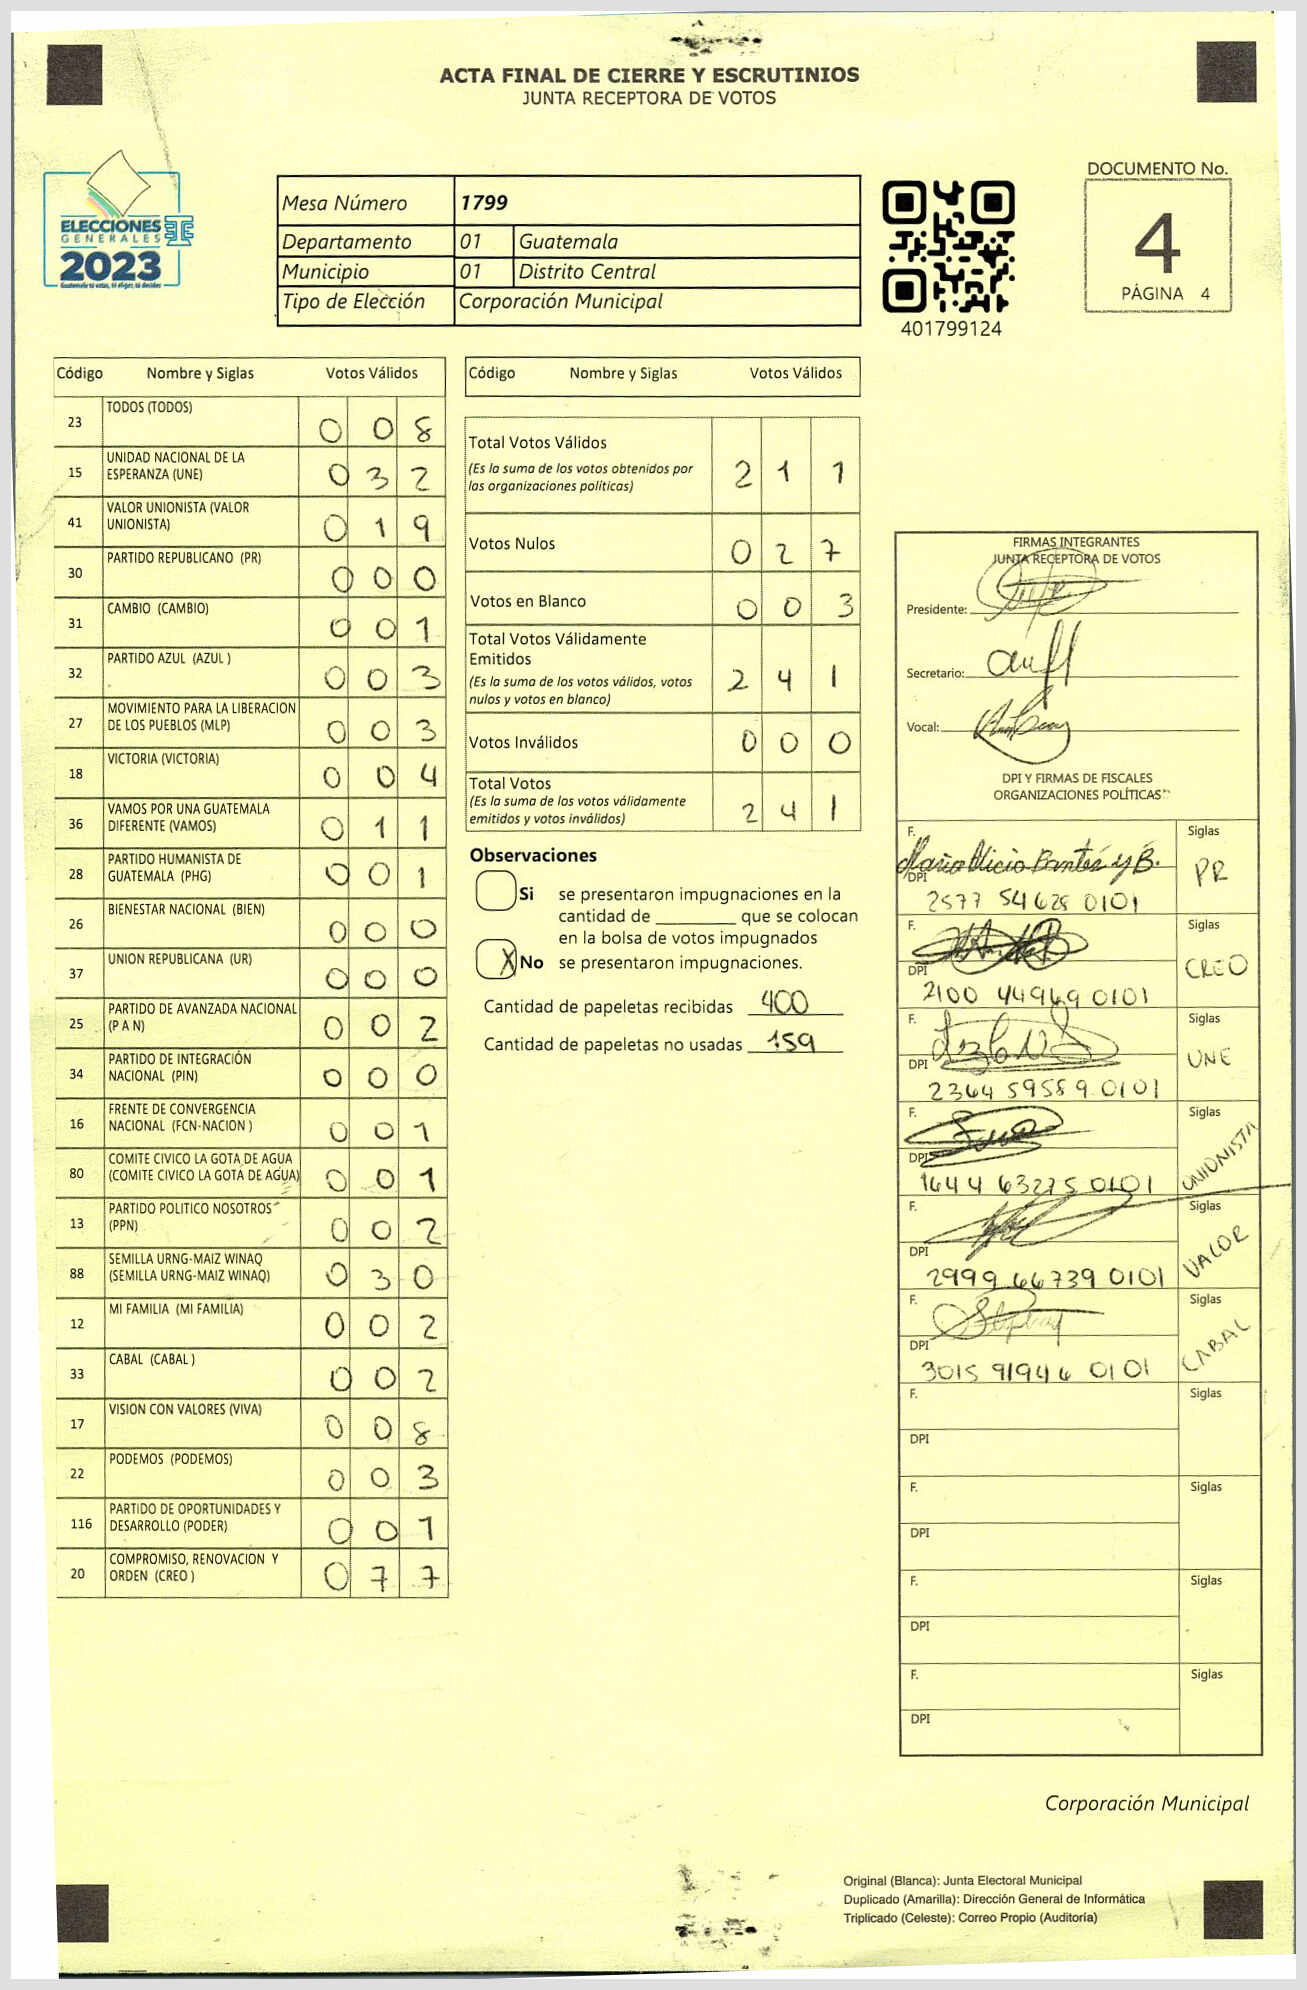 ACTA FINAL DE CIERRE Y ESCRUTINIOS
JUNTA RECEPTORA DE VOTOS
ELECCIONES
GENERALES
2023
Guatemala tú votas, tú eliges, tú decides
Mesa Número 1799
Departamento 01 Guatemala
Municipio 01 Distrito Central
Tipo de Elección Corporación Municipal
401799124
DOCUMENTO No.
4
PÁGINA 4
Código Nombre y Siglas Votos Válidos
23 TODOS (TODOS) 0 0 8
15 UNIDAD NACIONAL DE LA
ESPERANZA (UNE) 0 3 2
41 VALOR UNIONISTA (VALOR
UNIONISTA) 0 1 9
30 PARTIDO REPUBLICANO (PR) 0 0 0
31 CAMBIO (CAMBIO) 0 0 1
32 PARTIDO AZUL (AZUL ) 0 0 3
27 MOVIMIENTO PARA LA LIBERACION
DE LOS PUEBLOS (MLP) 0 0 3
18 VICTORIA (VICTORIA) 0 0 4
36 VAMOS POR UNA GUATEMALA
DIFERENTE (VAMOS) 0 1 1
28 PARTIDO HUMANISTA DE
GUATEMALA (PHG) 0 0 1
26 BIENESTAR NACIONAL (BIEN) 0 0 0
37 UNION REPUBLICANA (UR) 0 0 0
25 PARTIDO DE AVANZADA NACIONAL
(P A N) 0 0 2
34 PARTIDO DE INTEGRACIÓN
NACIONAL (PIN) 0 0 0
16 FRENTE DE CONVERGENCIA
NACIONAL (FCN-NACION ) 0 0 1
80 COMITE CIVICO LA GOTA DE AGUA
(COMITE CIVICO LA GOTA DE AGUA) 0 0 1
13 PARTIDO POLITICO NOSOTROS
(PPN) 0 0 2
88 SEMILLA URNG-MAIZ WINAQ
(SEMILLA URNG-MAIZ WINAQ) 0 3 0
12 MI FAMILIA (MI FAMILIA) 0 0 2
33 CABAL (CABAL ) 0 0 2
17 VISION CON VALORES (VIVA) 0 0 8
22 PODEMOS (PODEMOS) 0 0 3
116 PARTIDO DE OPORTUNIDADES Y
DESARROLLO (PODER) 0 0 1
20 COMPROMISO, RENOVACION Y
ORDEN (CREO ) 0 7 7
Código Nombre y Siglas Votos Válidos
Total Votos Válidos 2 1 1
(Es la suma de los votos obtenidos por
las organizaciones políticas)
Votos Nulos 0 2 7
Votos en Blanco 0 0 3
Total Votos Válidamente
Emitidos 2 4 1
(Es la suma de los votos válidos, votos
nulos y votos en blanco)
Votos Inválidos 0 0 0
Total Votos 2 4 1
(Es la suma de los votos válidamente
emitidos y votos inválidos)
Observaciones
Si se presentaron impugnaciones en la
cantidad de ________ que se colocan
en la bolsa de votos impugnados
X No se presentaron impugnaciones.
Cantidad de papeletas recibidas 400
Cantidad de papeletas no usadas 159
FIRMAS INTEGRANTES
JUNTA RECEPTORA DE VOTOS
Presidente:
Secretario:
Vocal:
DPI Y FIRMAS DE FISCALES
ORGANIZACIONES POLÍTICAS
F. Siglas
PR
DPI
2577 54628 0101
F. Siglas
CREO
DPI
2100 44969 0101
F. Siglas
UNE
DPI
2364 59589 0101
F. Siglas
UNIONISTA
DPI
1644 63275 0101
F. Siglas
VALOR
DPI
2999 66739 0101
F. Siglas
CABAL
DPI
3015 91946 0101
F. Siglas
DPI
F. Siglas
DPI
F. Siglas
DPI
F. Siglas
DPI
Corporación Municipal
Original (Blanca): Junta Electoral Municipal
Duplicado (Amarilla): Dirección General de Informática
Triplicado (Celeste): Correo Propio (Auditoría)